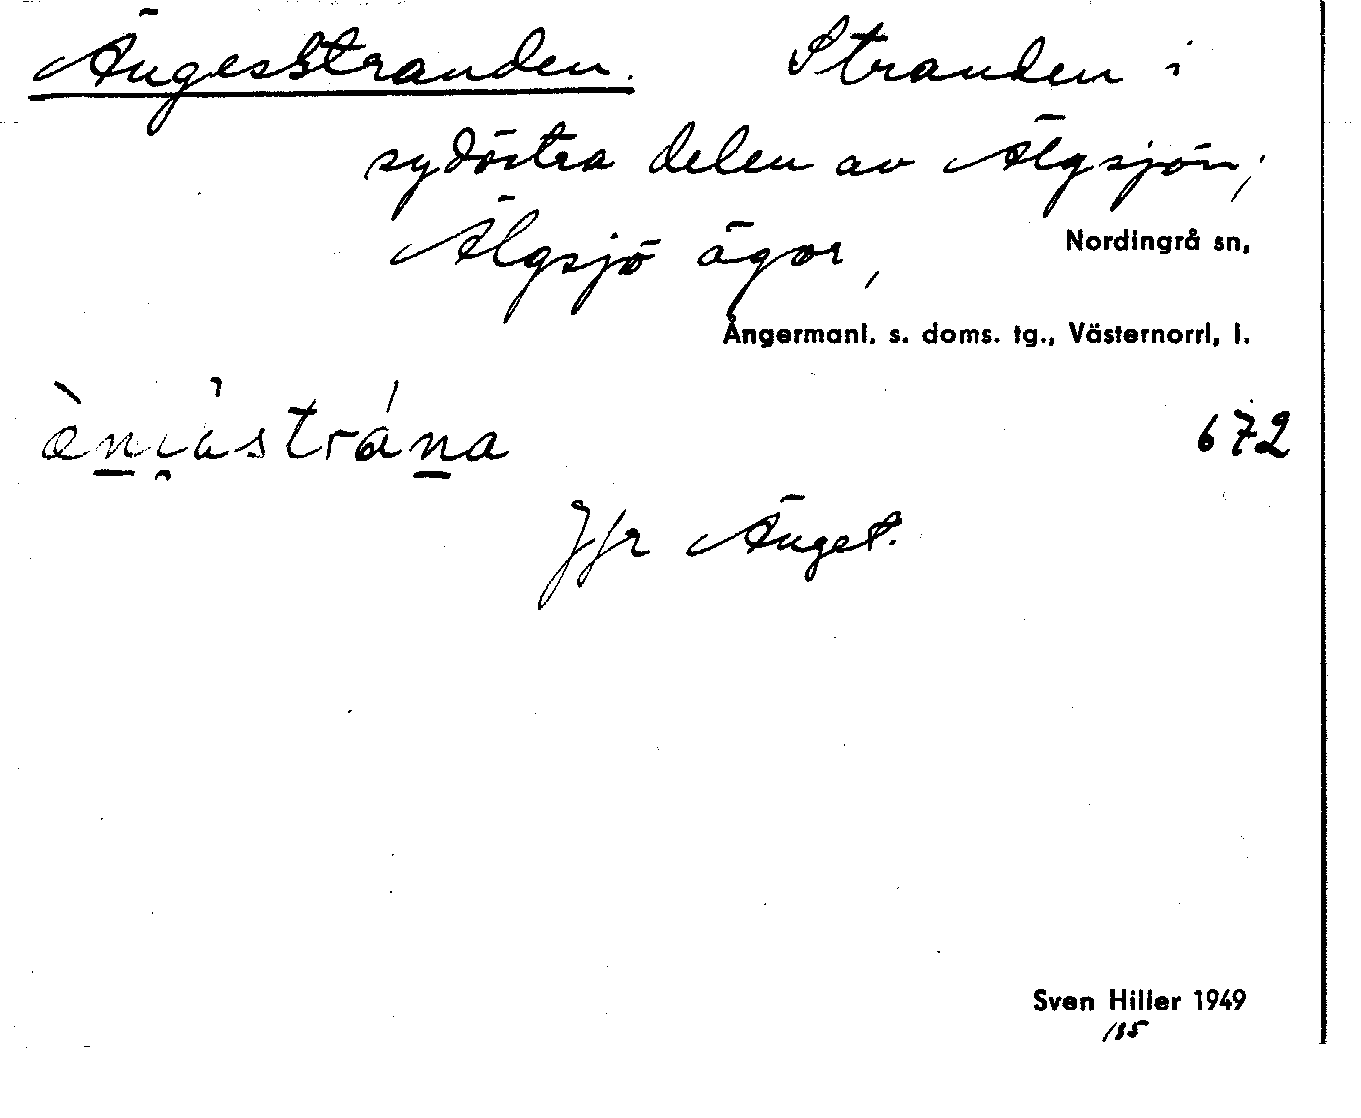 Ängesstranden. Stranden i
sydöstra delen av Älgsjön,
Älgsjö ägor,
Nordingrå sn,
Ångermanl. s. doms. tg., Västernorrl, l.
672
Jfr Änget.
Sven Hiller 1949